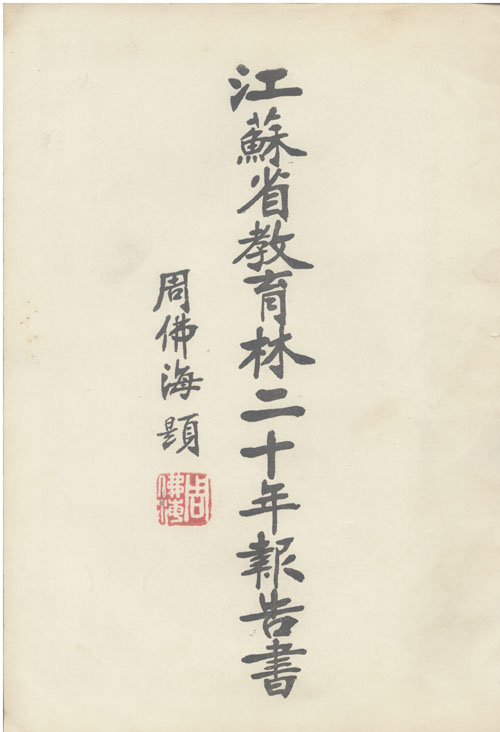 江蘇省教育林二十年報告書
周佛海題
周佛海